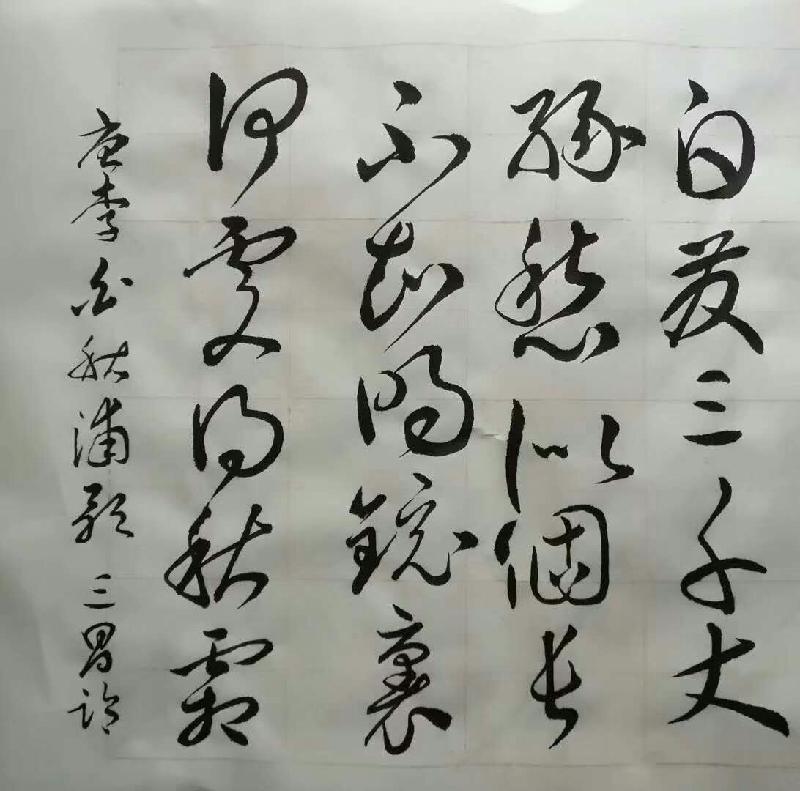 白发三千丈
缘愁似個长
不知明镜裏
何处得秋霜
唐李白秋浦歌 三